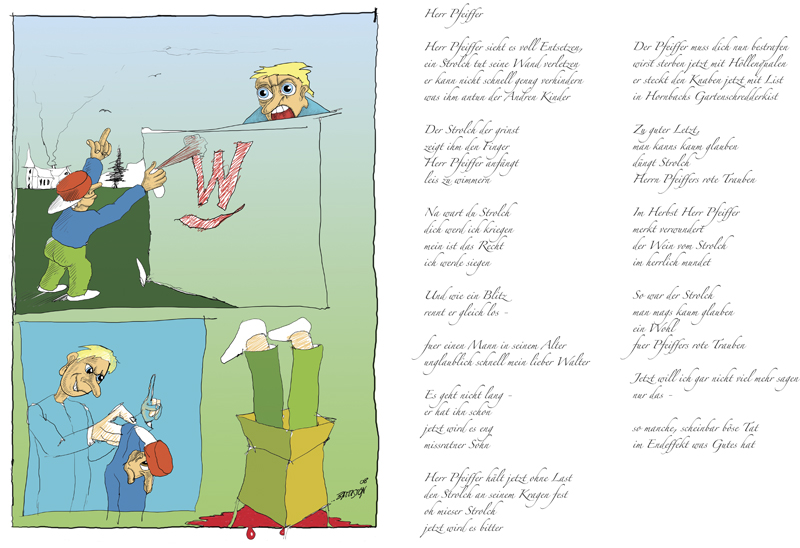 Herr Pfeiffer
Herr Pfeiffer sieht es voll Entsetzen,
ein Strolch tut seine Wand verletzen
er kann nicht schnell genug verhindern
was ihm antun der Andren Kinder
Der Strolch der grinst
zeigt ihm den Finger
Herr Pfeiffer anfängt
leis zu wimmern
Na wart du Strolch
dich werd ich kriegen
mein ist das Recht
ich werde siegen
Und wie ein Blitz
rennt er gleich los -
fuer einen Mann in seinem Alter
unglaublich schnell mein lieber Walter
Es geht nicht lang -
er hat ihn schon
jetzt wird es eng
missratner Sohn
Herr Pfeiffer hält jetzt ohne Last
den Strolch an seinem Kragen fest
oh mieser Strolch
jetzt wird es bitter
Der Pfeiffer muss dich nun bestrafen
wirst sterben jetzt mit Höllenqualen
er steckt den Knaben jetzt mit List
in Hornbachs Gartenschredderkist
Zu guter Letzt,
man kanns kaum glauben
düngt Strolch
Herrn Pfeiffers rote Trauben
Im Herbst Herr Pfeiffer
merkt verwundert
der Wein vom Strolch
im herrlich mundet
So war der Strolch
man mags kaum glauben
ein Wohl
fuer Pfeiffers rote Trauben
Jetzt will ich gar nicht viel mehr sagen
nur das -
so manche, scheinbar böse Tat
im Endeffekt was Gutes hat
W